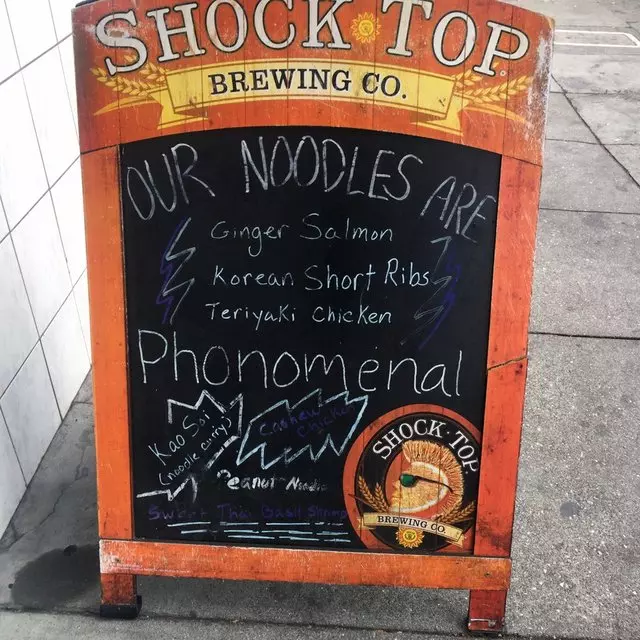 SHOCK TOP
BREWING CO.
OUR NOODLES ARE
Ginger Salmon
Korean Short Ribs
Teriyaki Chicken
Phonomenal
Kao Soi
(noodle curry)
Cashew
Chicken
Peanut Noodle
Sweet Thai Basil Shrimp
SHOCK TOP
BREWING CO.